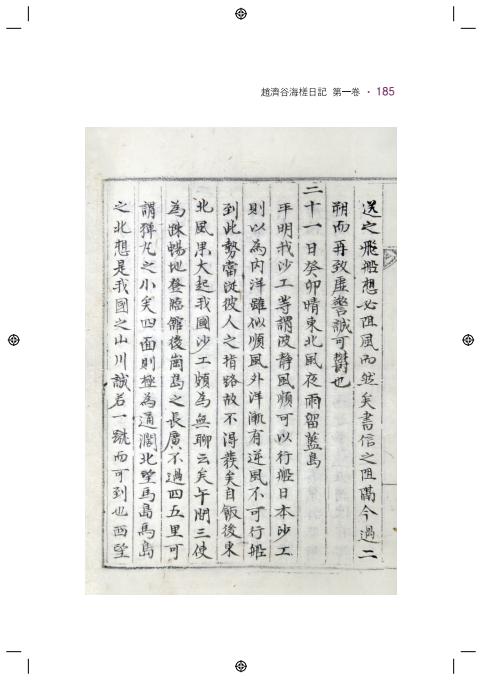 趙濟谷海槎日記 第一卷 · 185
送之飛船想必阻風而然矣書信之阻隔今過二
朔而再致虛警誠可鬱也
二十一日癸卯晴東北風夜雨留藍島
平明我沙工等謂波靜風順可以行船日本沙工
則以為內洋雖似順風外洋漸有逆風不可行船
到此勢當從彼人之指路故不得發矣自飯後東
北風果大起我國沙工頗為無聊云矣午間三使
為疎暢地登臨館後崗島之長廣不過四五里可
謂彈丸之小矣四面則極為通濶北望馬島馬島
之北想是我國之山川誠若一跳而可到也西望